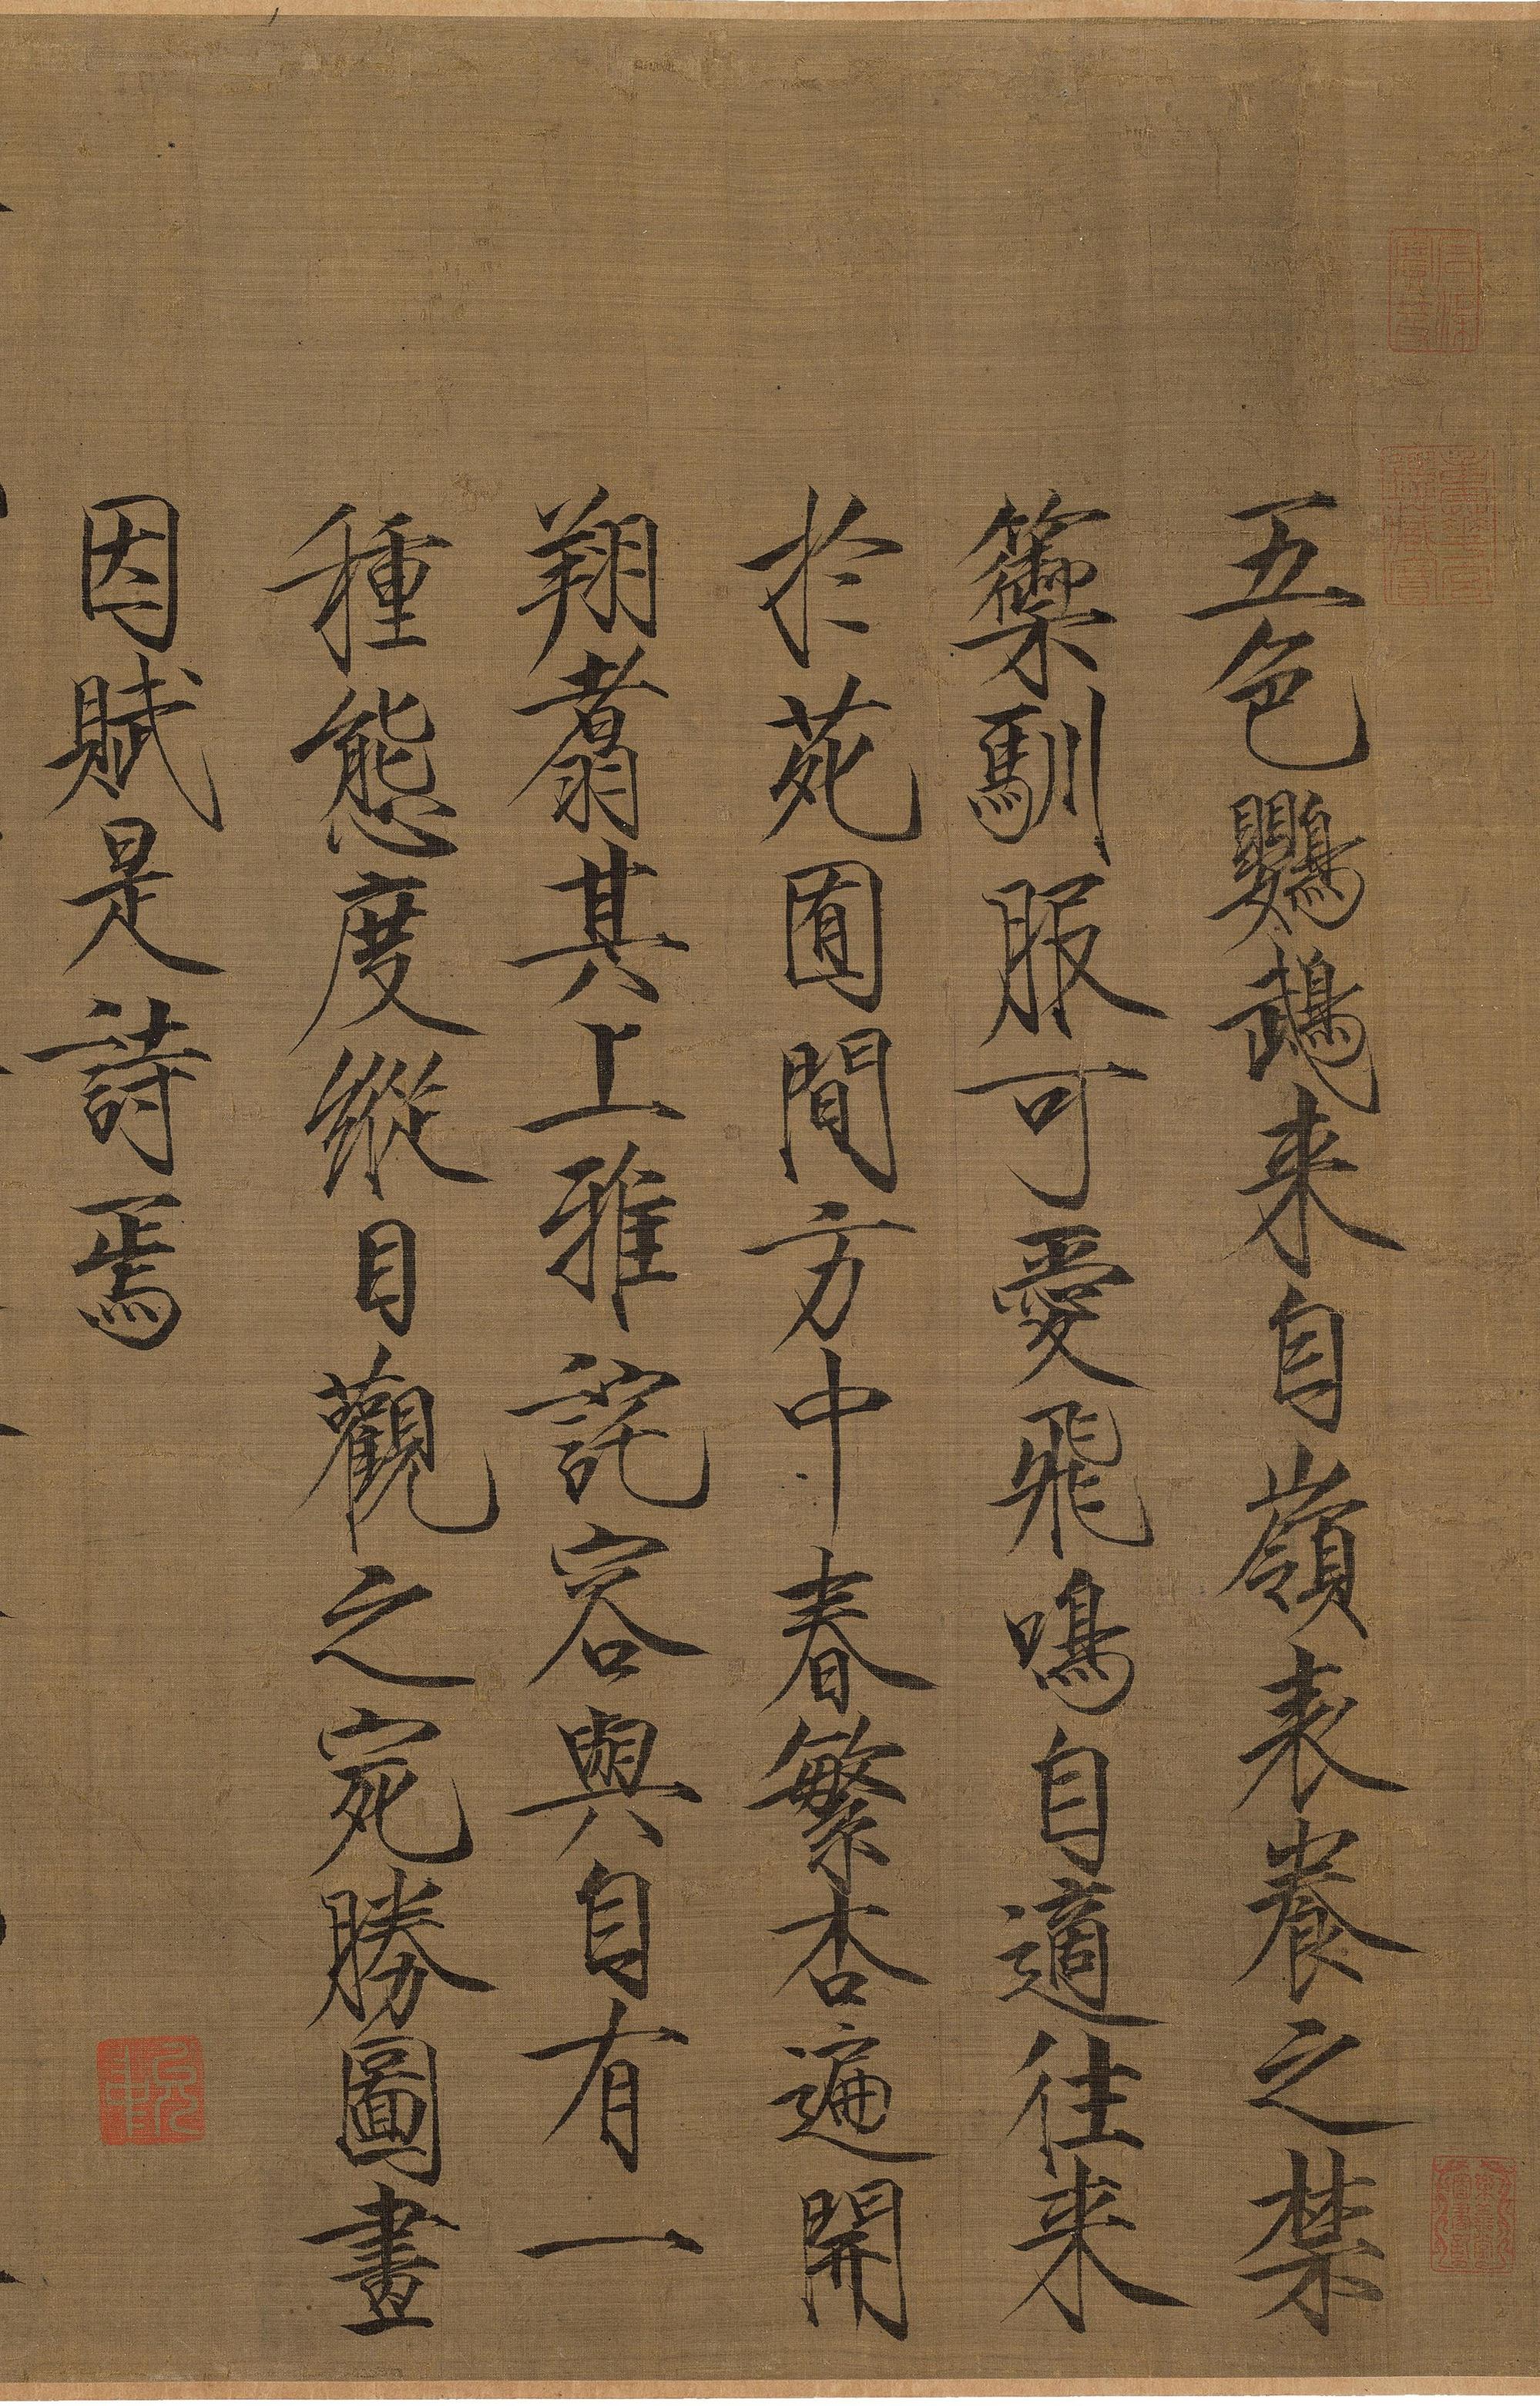 五色鸚鵡来自嶺表養之禁
籞馴服可愛飛鳴自適往来
於苑囿間方中春繁杏遍開
翔翥其上雅詫容與自有一
種態度縱目觀之宛勝圖畫
因賦是詩焉